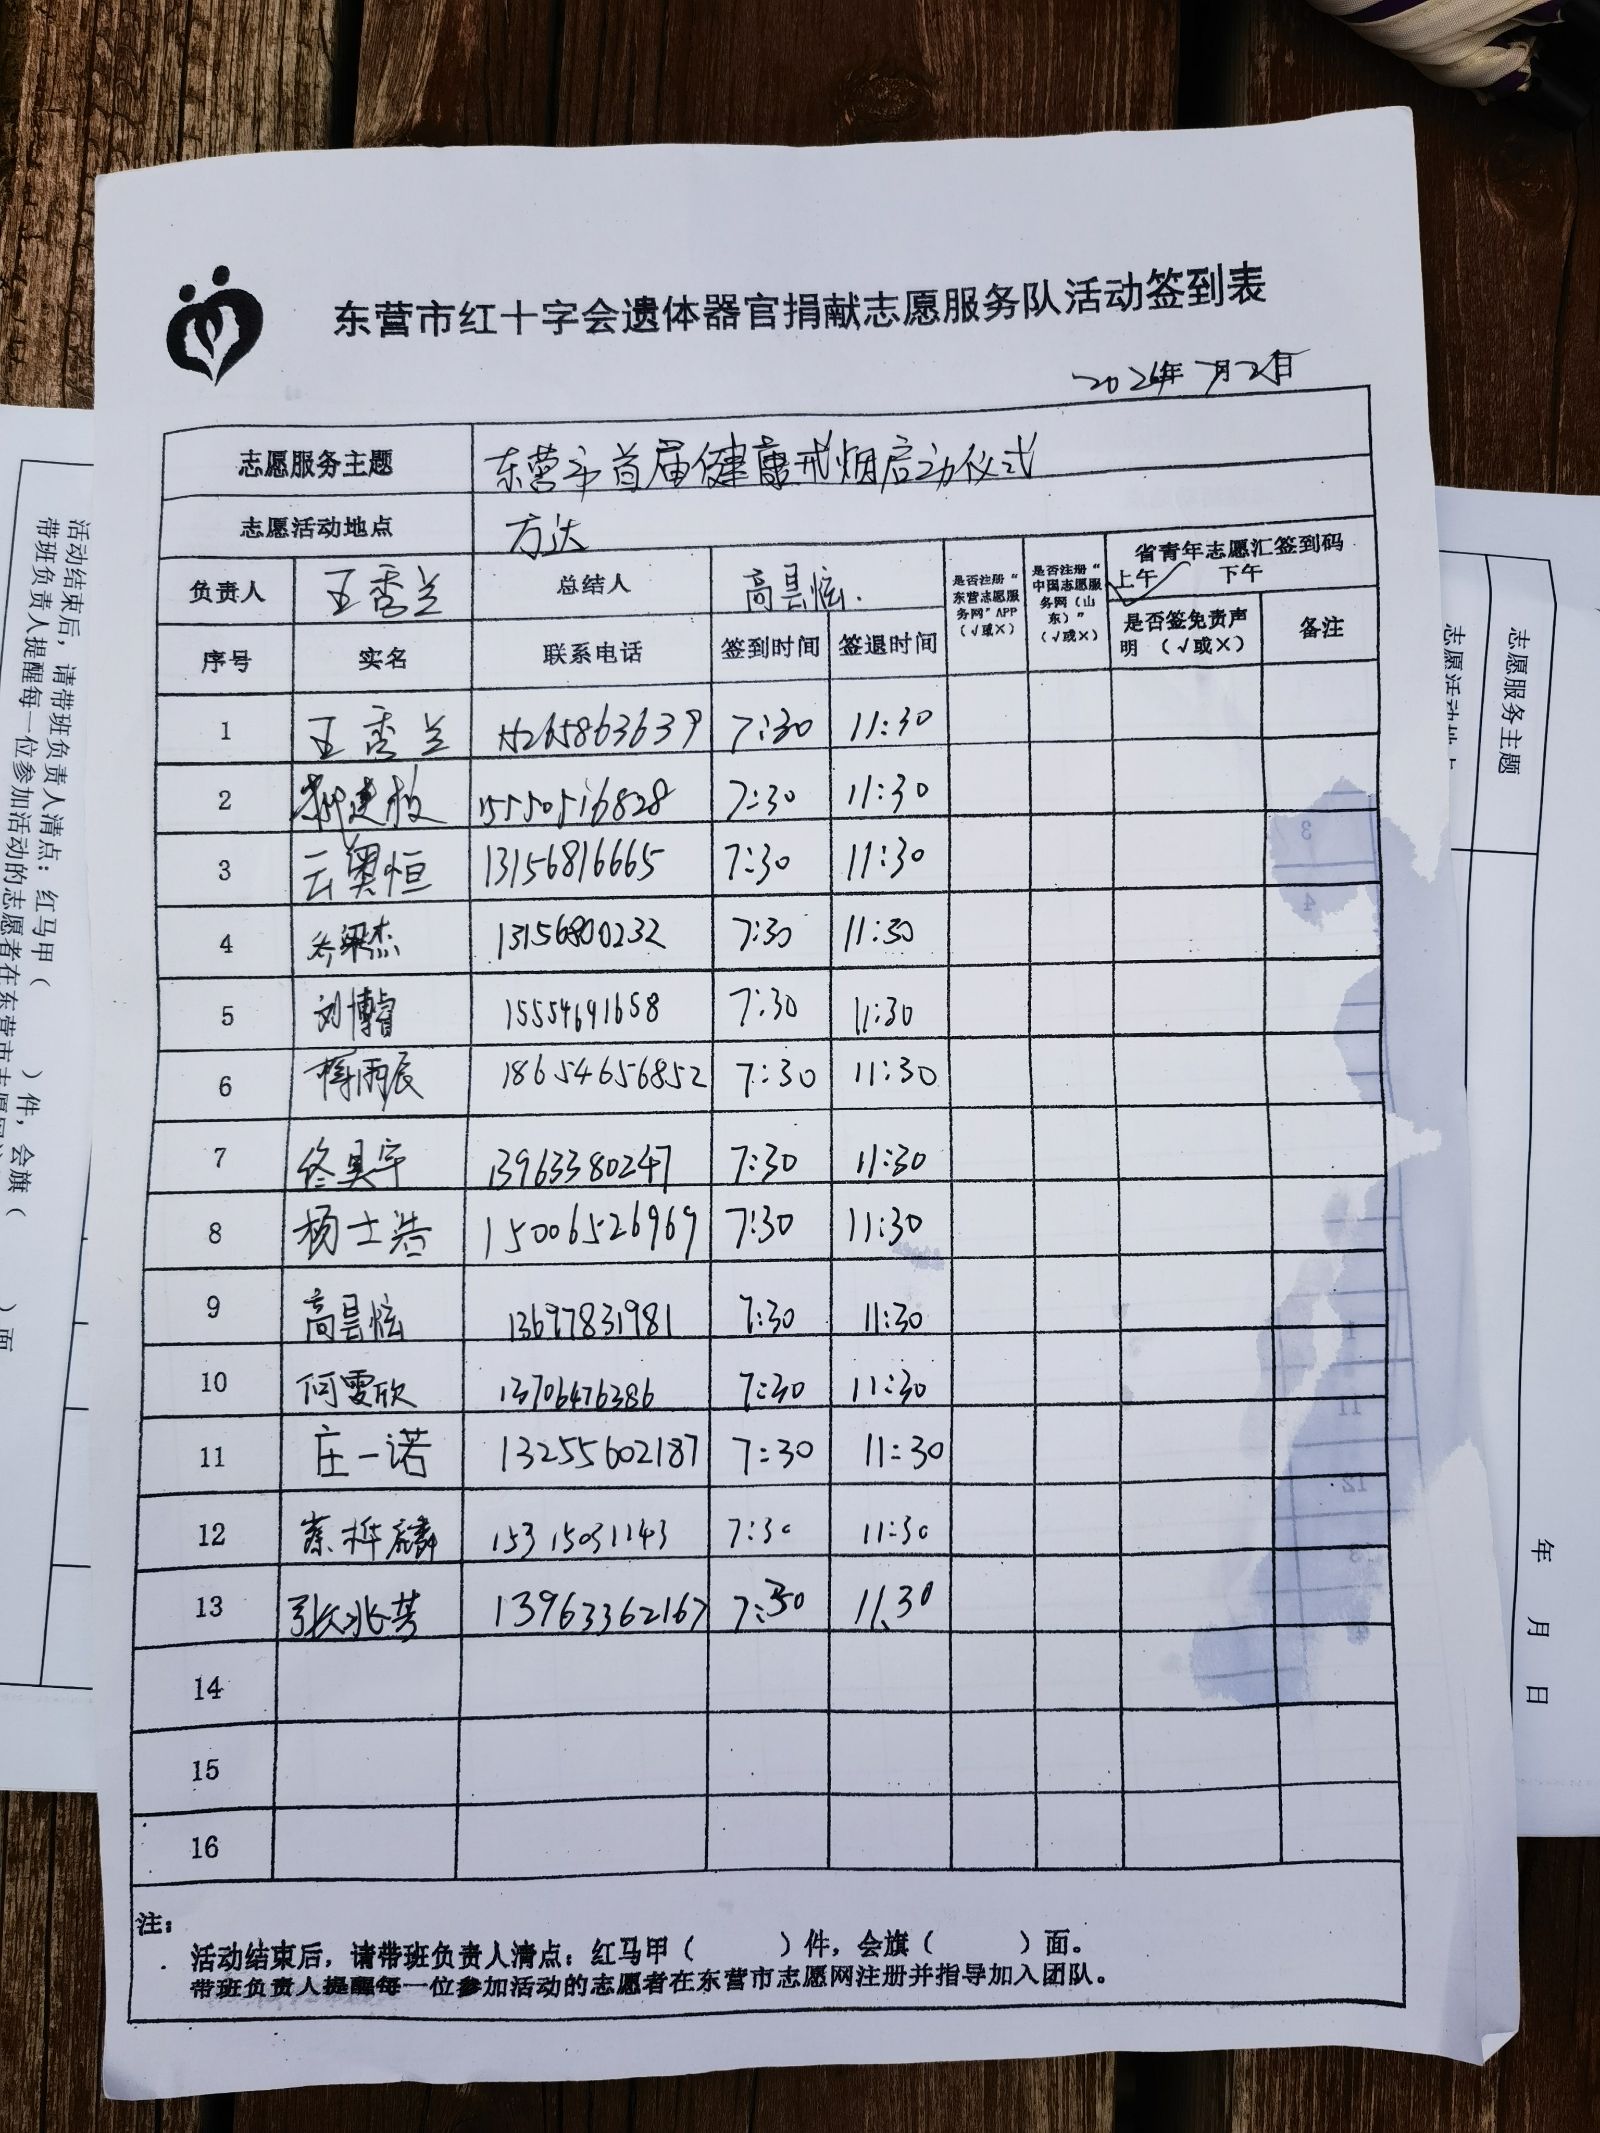 东营市红十字会遗体器官捐献志愿服务队活动签到表
2026年7月2日
志愿服务主题 东营市首届健康戒烟启动仪式
志愿活动地点 万达
负责人 王秀兰 总结人 高昙炫. 是否注册“东营志愿服务网”APP（√或×） 是否注册“中国志愿服务网（山东）”（√或×） 省青年志愿汇签到码
上午√ 下午
序号 实名 联系电话 签到时间 签退时间 是否签免责声明（√或×） 备注
1 王秀兰 15265863639 7:30 11:30
2 15550516828 7:30 11:30
3 云奥恒 13156816665 7:30 11:30
4 13156800232 7:30 11:30
5 刘博睿 15554691658 7:30 11:30
6 18654656852 7:30 11:30
7 13963380247 7:30 11:30
8 杨士浩 15006526969 7:30 11:30
9 高昙炫 13697831981 7:30 11:30
10 何雯欣 13706476386 7:30 11:30
11 庄一诺 13255602187 7:30 11:30
12 蔡桦麟 15315031143 7:30 11:30
13 张兆芳 13963362167 7:30 11:30
14
15
16
注：
活动结束后，请带班负责人清点：红马甲（ ）件，会旗（ ）面。
带班负责人提醒每一位参加活动的志愿者在东营市志愿网注册并指导加入团队。
活动结束后，请带班负责人清点：红马甲（ ）件，会旗（ ）面
带班负责人提醒每一位参加活动的志愿者在东营市志愿网
志愿服务主题
志愿活动地
年 月 日